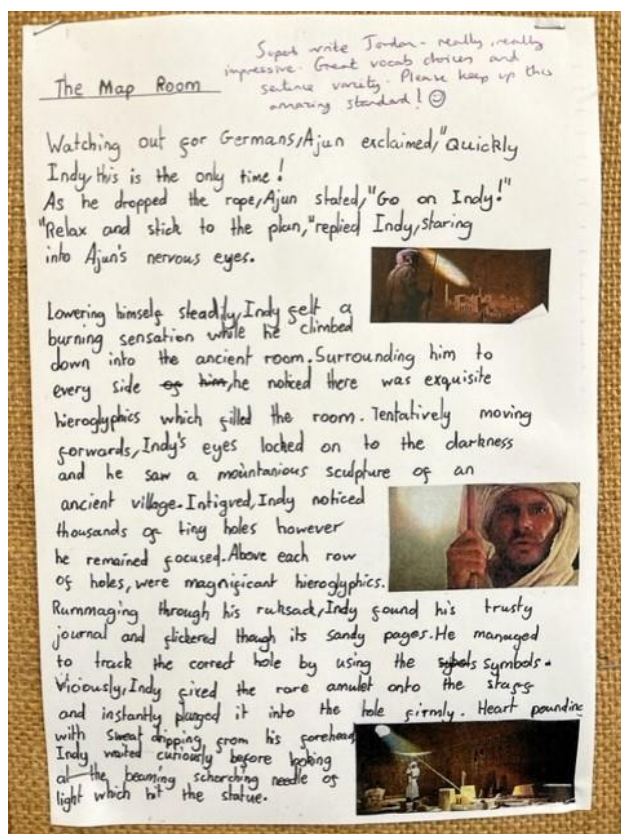 Superb write Jordan - really, really
impressive. Great vocab choices and
sentence variety. Please keep up this
amazing standard! ☺
The Map Room
Watching out for Germans, Ajun exclaimed, "Quickly
Indy, this is the only time!
As he dropped the rope, Ajun stated, "Go on Indy!"
"Relax and stick to the plan," replied Indy, staring
into Ajun's nervous eyes.
Lowering himself steadily, Indy felt a
burning sensation while he climbed
down into the ancient room. Surrounding him to
every side of him, he noticed there was exquisite
hieroglyphics which filled the room. Tentatively moving
forwards, Indy's eyes locked on to the darkness
and he saw a mountanious sculpture of an
ancient village. Intigved, Indy noticed
thousands of tiny holes however
he remained focused. Above each row
of holes, were magnificant hieroglyphics.
Rummaging through his ruksack, Indy found his trusty
journal and flickered though its sandy pages. He managed
to track the correct hole by using the symbols.
Viciously, Indy fixed the rare amulet onto the staff
and instantly plunged it into the hole firmly. Heart pounding
with sweat dripping from his forehead,
Indy waited curiously before looking
at the beaming schorching needle of
light which hit the statue.